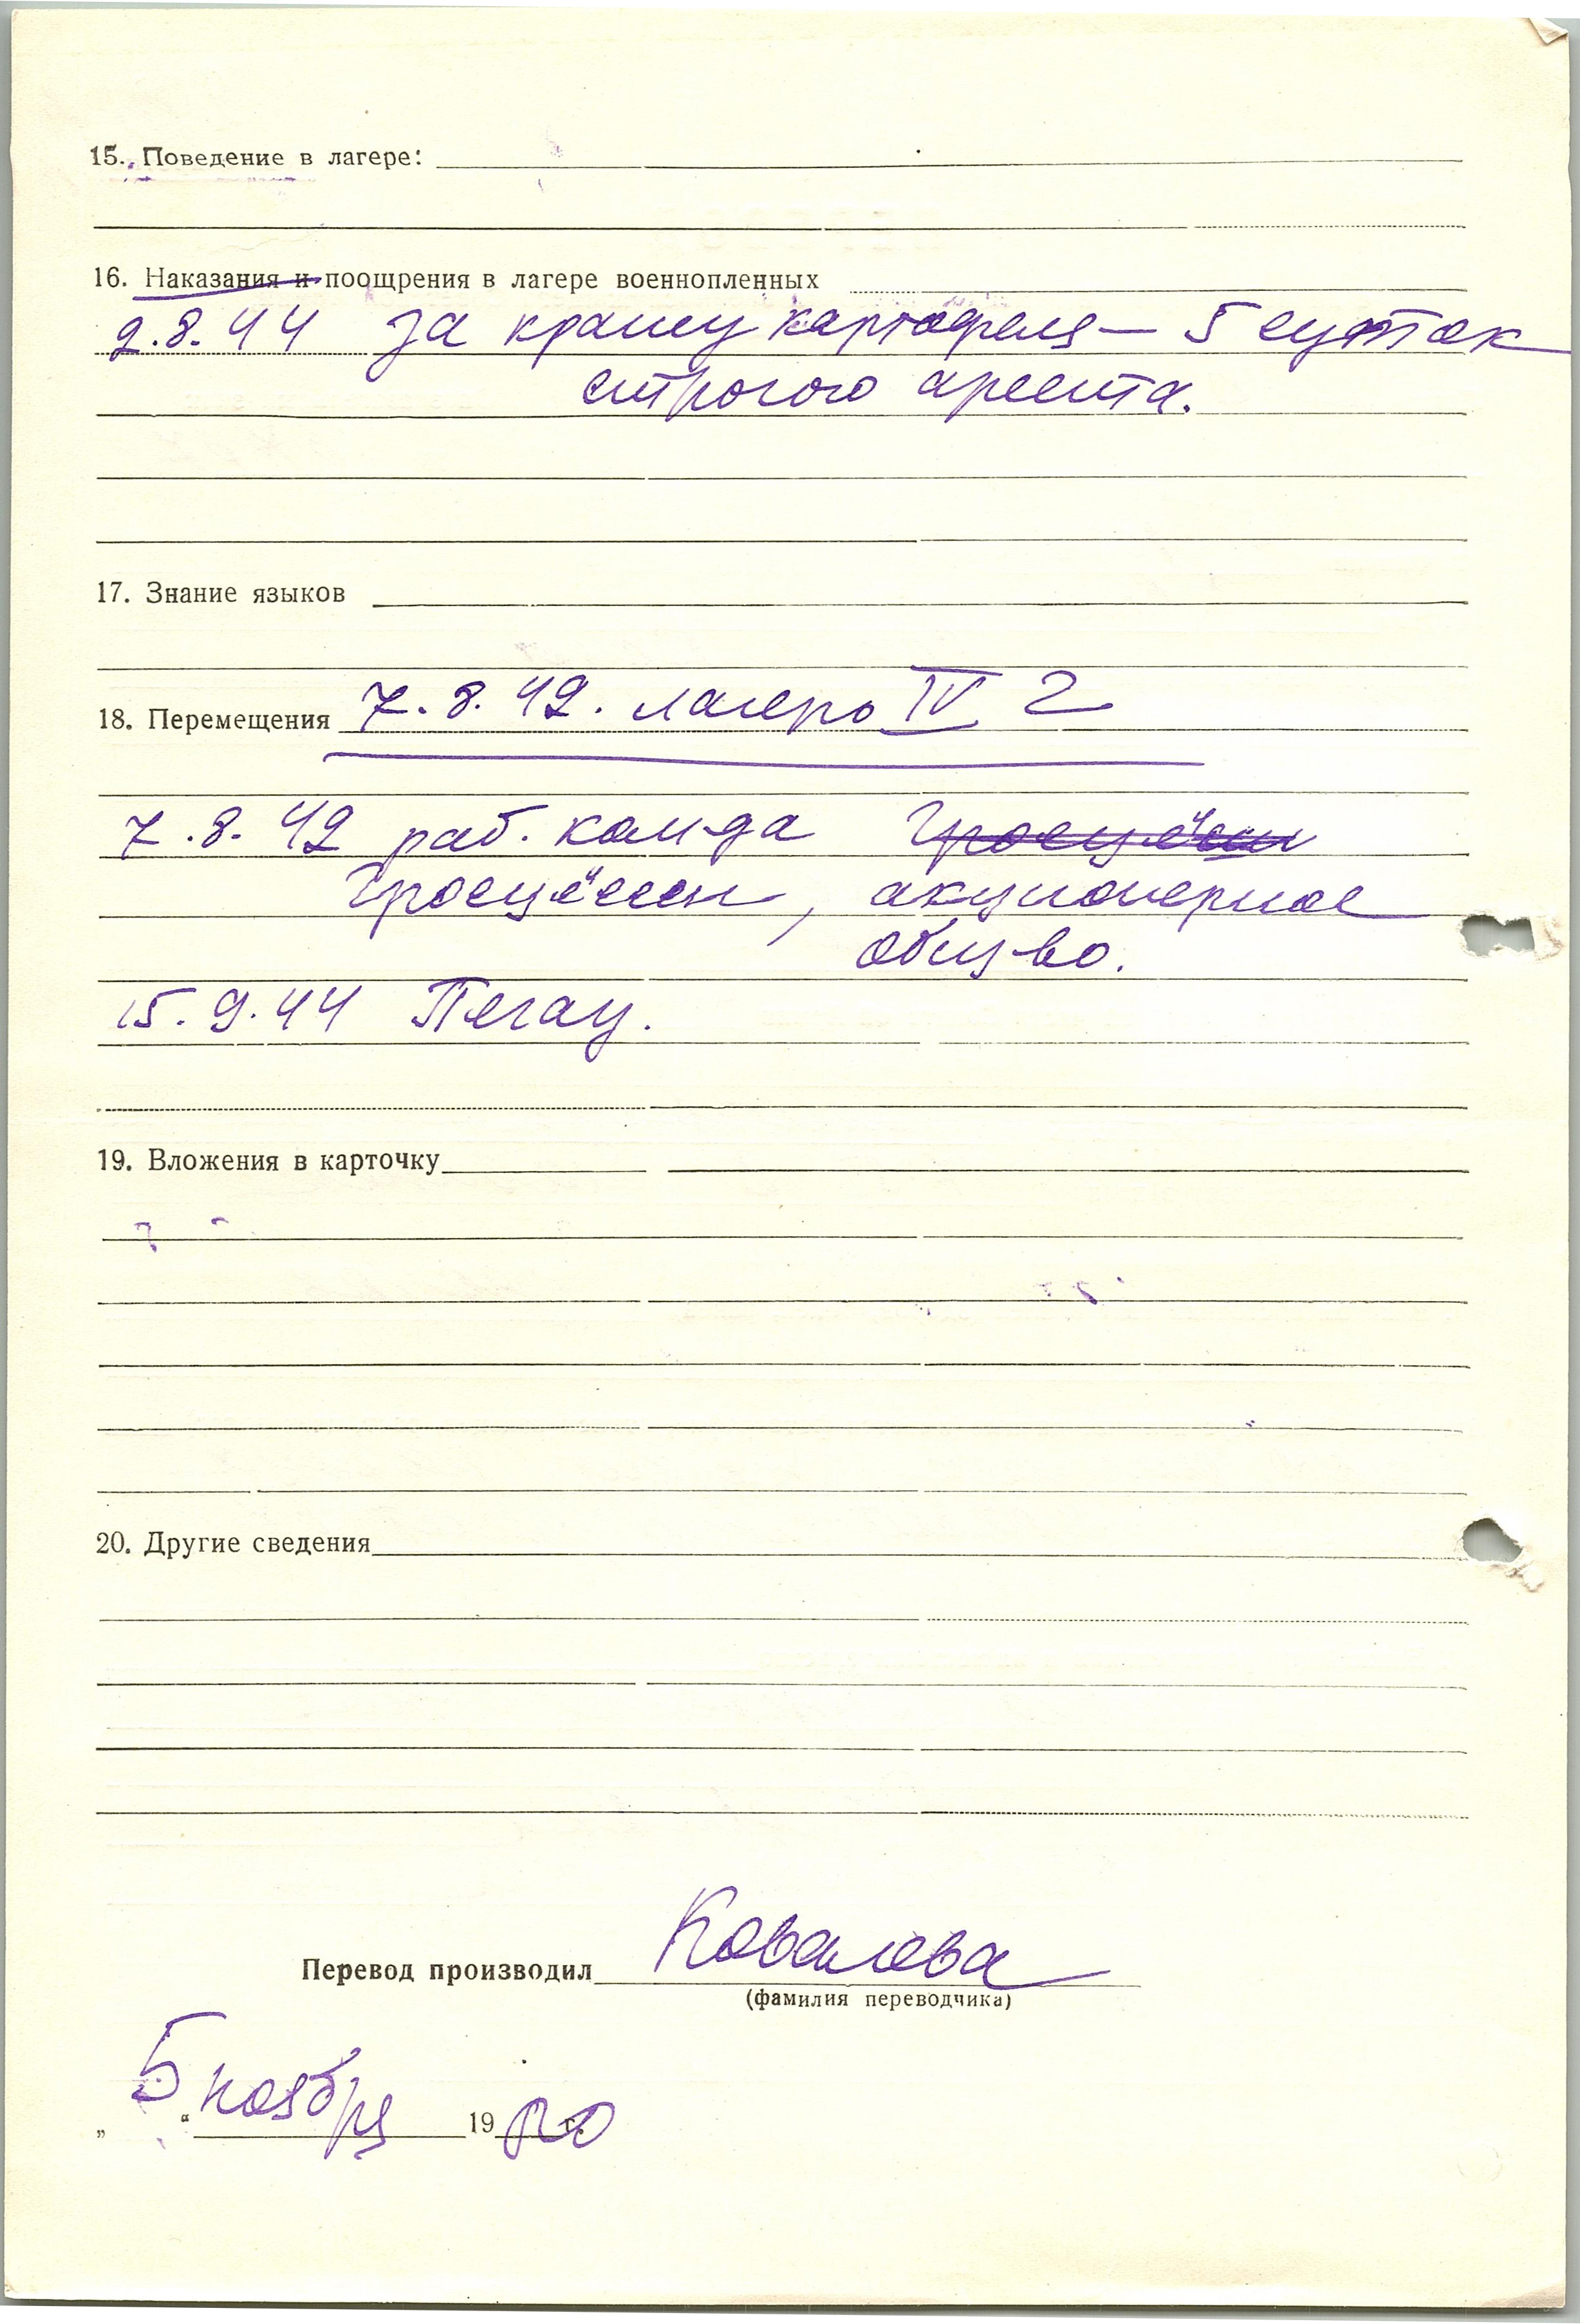 15. Поведение в лагере:
16. Наказания и поощрения в лагере военнопленных
9.8.44 за кражу картофеля — 5 суток
строгого ареста.
17. Знание языков
18. Перемещения 7.8.42. лагерь IV Г
7.8.42 раб. комда Гросцёссен
Гросцёссен, акционерное
общ-во.
15.9.44 Пегау.
19. Вложения в карточку
20. Другие сведения
Перевод производил Ковалева
(фамилия переводчика)
„5“ ноября 1980 г.